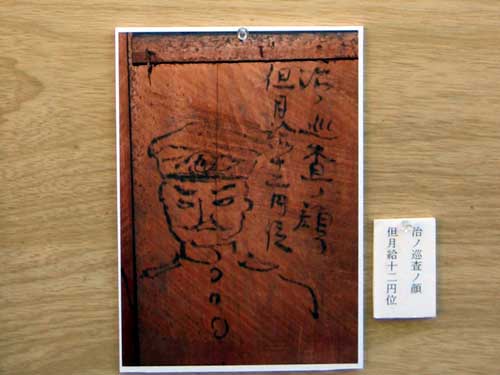 治ノ巡査ノ顔
但月給十二円位
治ノ巡査ノ顔
但月給十二円位